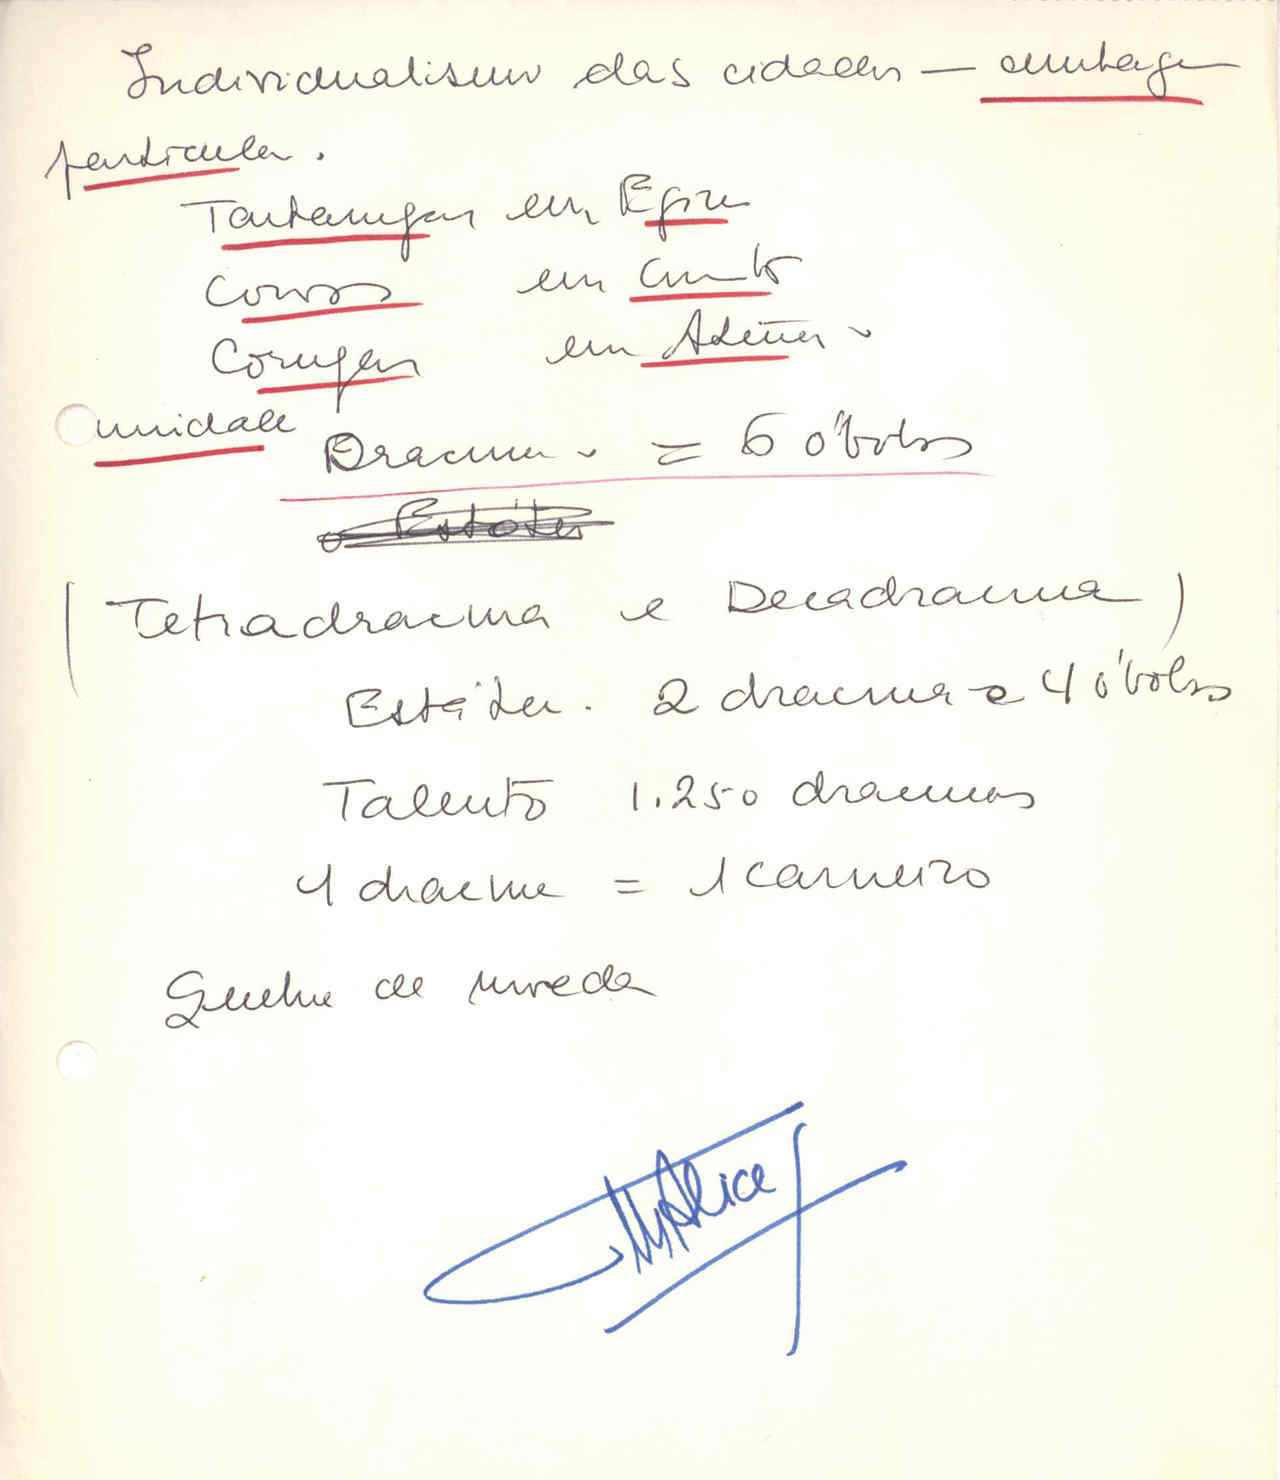 Individualismo das cidades — cunhagem
particular.
Tartarugas em Egina
Couros em Corinto
Corujas em Atenas
unidade
Dracma = 6 óbolos
Estáter
(Tetradracma e Decadracma)
Estáter. 2 dracmas e 4 óbolos
Talento 1.250 dracmas
1 dracma = 1 carneiro
Quebra de moeda
MAlice